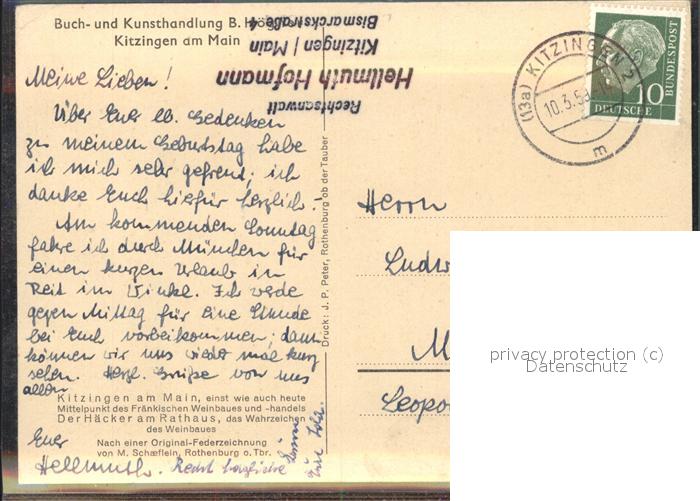 Buch- und Kunsthandlung B. Hög
Kitzingen am Main
Rechtsanwalt
Hellmuth Hofmann
Kitzingen / Main
Bismarckstraße 4
(13a) KITZINGEN 2
10.3.59
m
DEUTSCHE BUNDESPOST
10
Meine Lieben!
Über Euer lb. Gedenken
zu meinem Geburtstag habe
ich mich sehr gefreut; ich
danke Euch hiefür herzlich.-
Am kommenden Sonntag
fahre ich durch München für
einen kurzen Urlaub in
Reit im Winkl. Ich werde
gegen Mittag für eine Stunde
bei Euch vorbeikommen; dann
können wir uns wieder mal kurz
sehen. Herzl. Grüße von uns
allen
Euer
Hellmuth.
Recht herzliche
Grüße
Eure
Kitzingen am Main, einst wie auch heute
Mittelpunkt des Fränkischen Weinbaues und -handels
Der Häcker am Rathaus, das Wahrzeichen
des Weinbaues
Nach einer Original-Federzeichnung
von M. Schæflein, Rothenburg o. Tbr.
Druck: J. P. Peter, Rothenburg ob der Tauber
Herrn
Ludw
M
Leopo
privacy protection (c)
Datenschutz